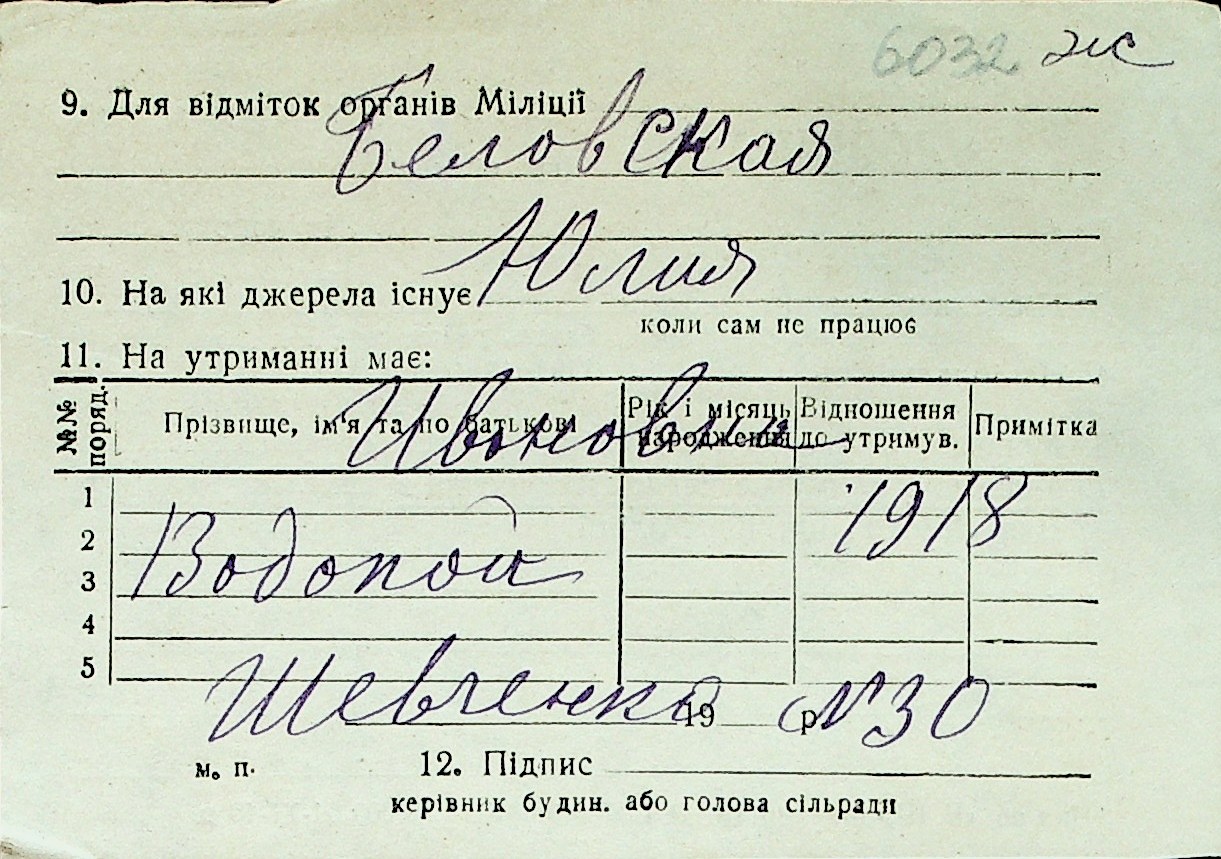 6032 жс
9. Для відміток органів Міліції
Беловская
Юлия
10. На які джерела існує
коли сам не працює
11. На утриманні має:
№№ поряд. Прізвище, ім'я та по батькові Рік і місяць народження Відношення до утримув. Примітка
Ивановна
1
1918
2
Водопой
3
4
5
Шевченко №30
19 р.
м. п. 12. Підпис
керівник будин. або голова сільради